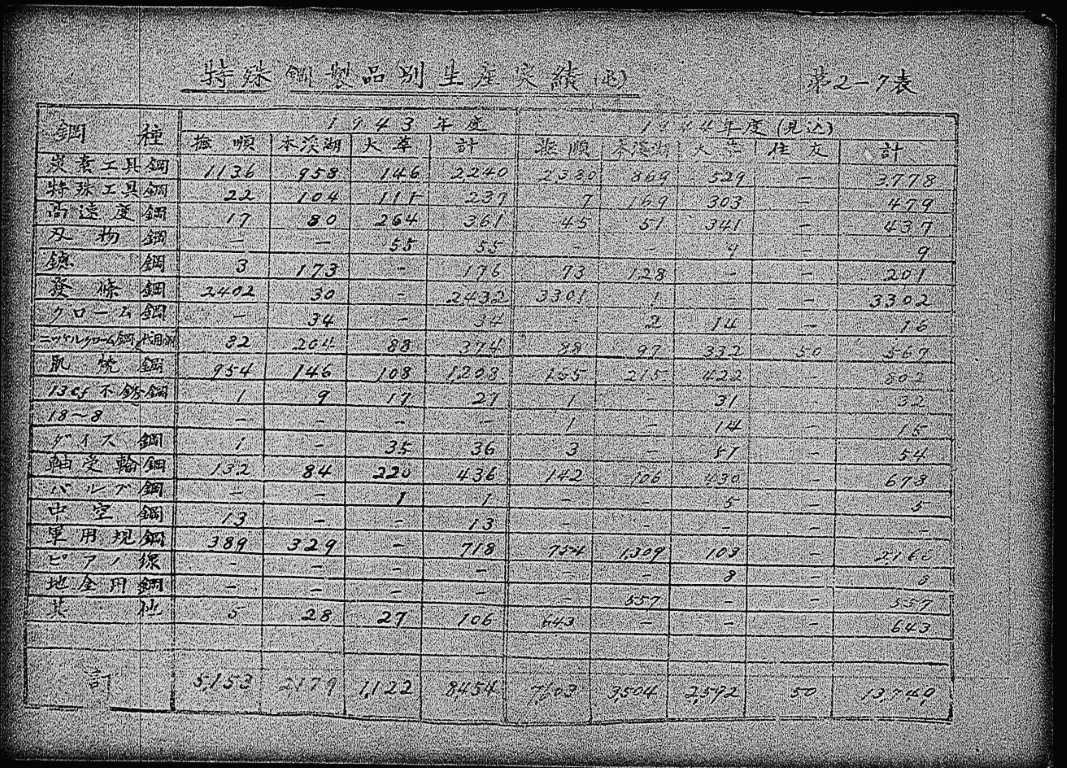 特殊鋼製品別生産実績(屯) 第2-7表
鋼種 1943年度 1944年度(見込)
撫順 本溪湖 大華 計 撫順 本溪湖 大華 住友 計
炭素工具鋼 1136 958 146 2240 2380 869 529 - 3778
特殊工具鋼 22 104 111 237 7 169 303 - 479
高速度鋼 17 80 264 361 45 51 341 - 437
刃物鋼 - - 55 55 - - 9 - 9
鋼 3 173 - 176 73 128 - - 201
發條鋼 2402 30 - 2432 3301 1 - - 3302
クローム鋼 - 34 - 34 - 2 14 - 16
ニッケルクローム鋼代用鋼 82 204 88 374 88 97 332 50 567
肌焼鋼 954 146 108 1208 155 215 422 802
13Cr不銹鋼 1 9 17 27 1 - 31 32
18~8 - - - - 1 - 14 - 15
ダイス鋼 1 - 35 36 3 - 51 - 54
軸受輪鋼 132 84 220 436 142 106 430 - 678
バルブ鋼 - - 1 1 - - 5 - 5
中空鋼 13 - - 13 - - - - -
軍用規鋼 389 329 - 718 754 1309 103 -
ピアノ線 - - - - - - 8 - 8
地金用鋼 - - - - - 557 - - 557
其他 5 28 27 106 643 - - - 643
計 5,153 2179 1,122 8454 3504 2,592 50 13,740